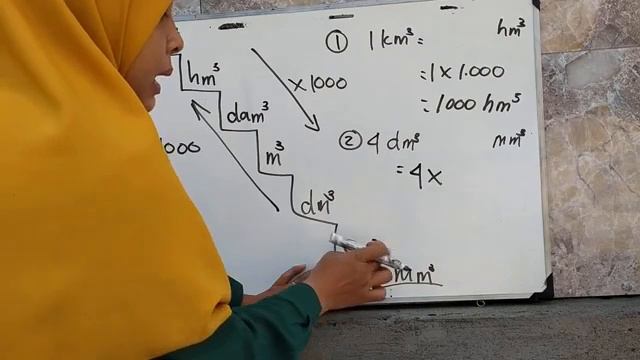 hm³
dam³
m³
dm³
mm³
x 1000
000
① 1 km³ = hm³
= 1 x 1.000
= 1000 hm³
② 4 dm³ mm³
= 4 x